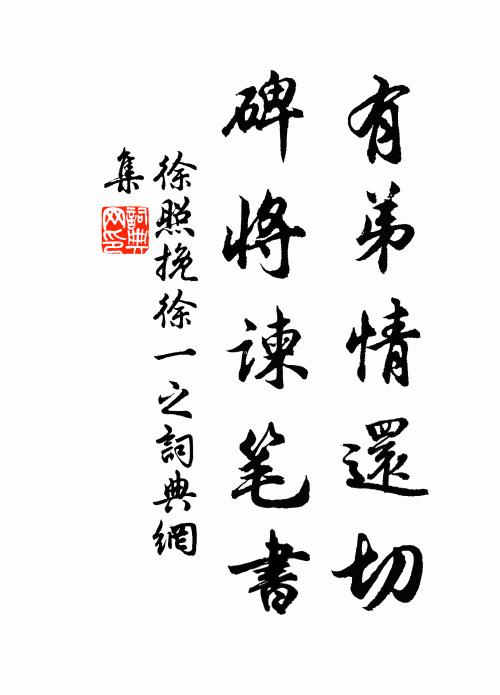 有弟情還切
碑將諫笔書
徐照挽徐一之詞典網
集
詞典網印